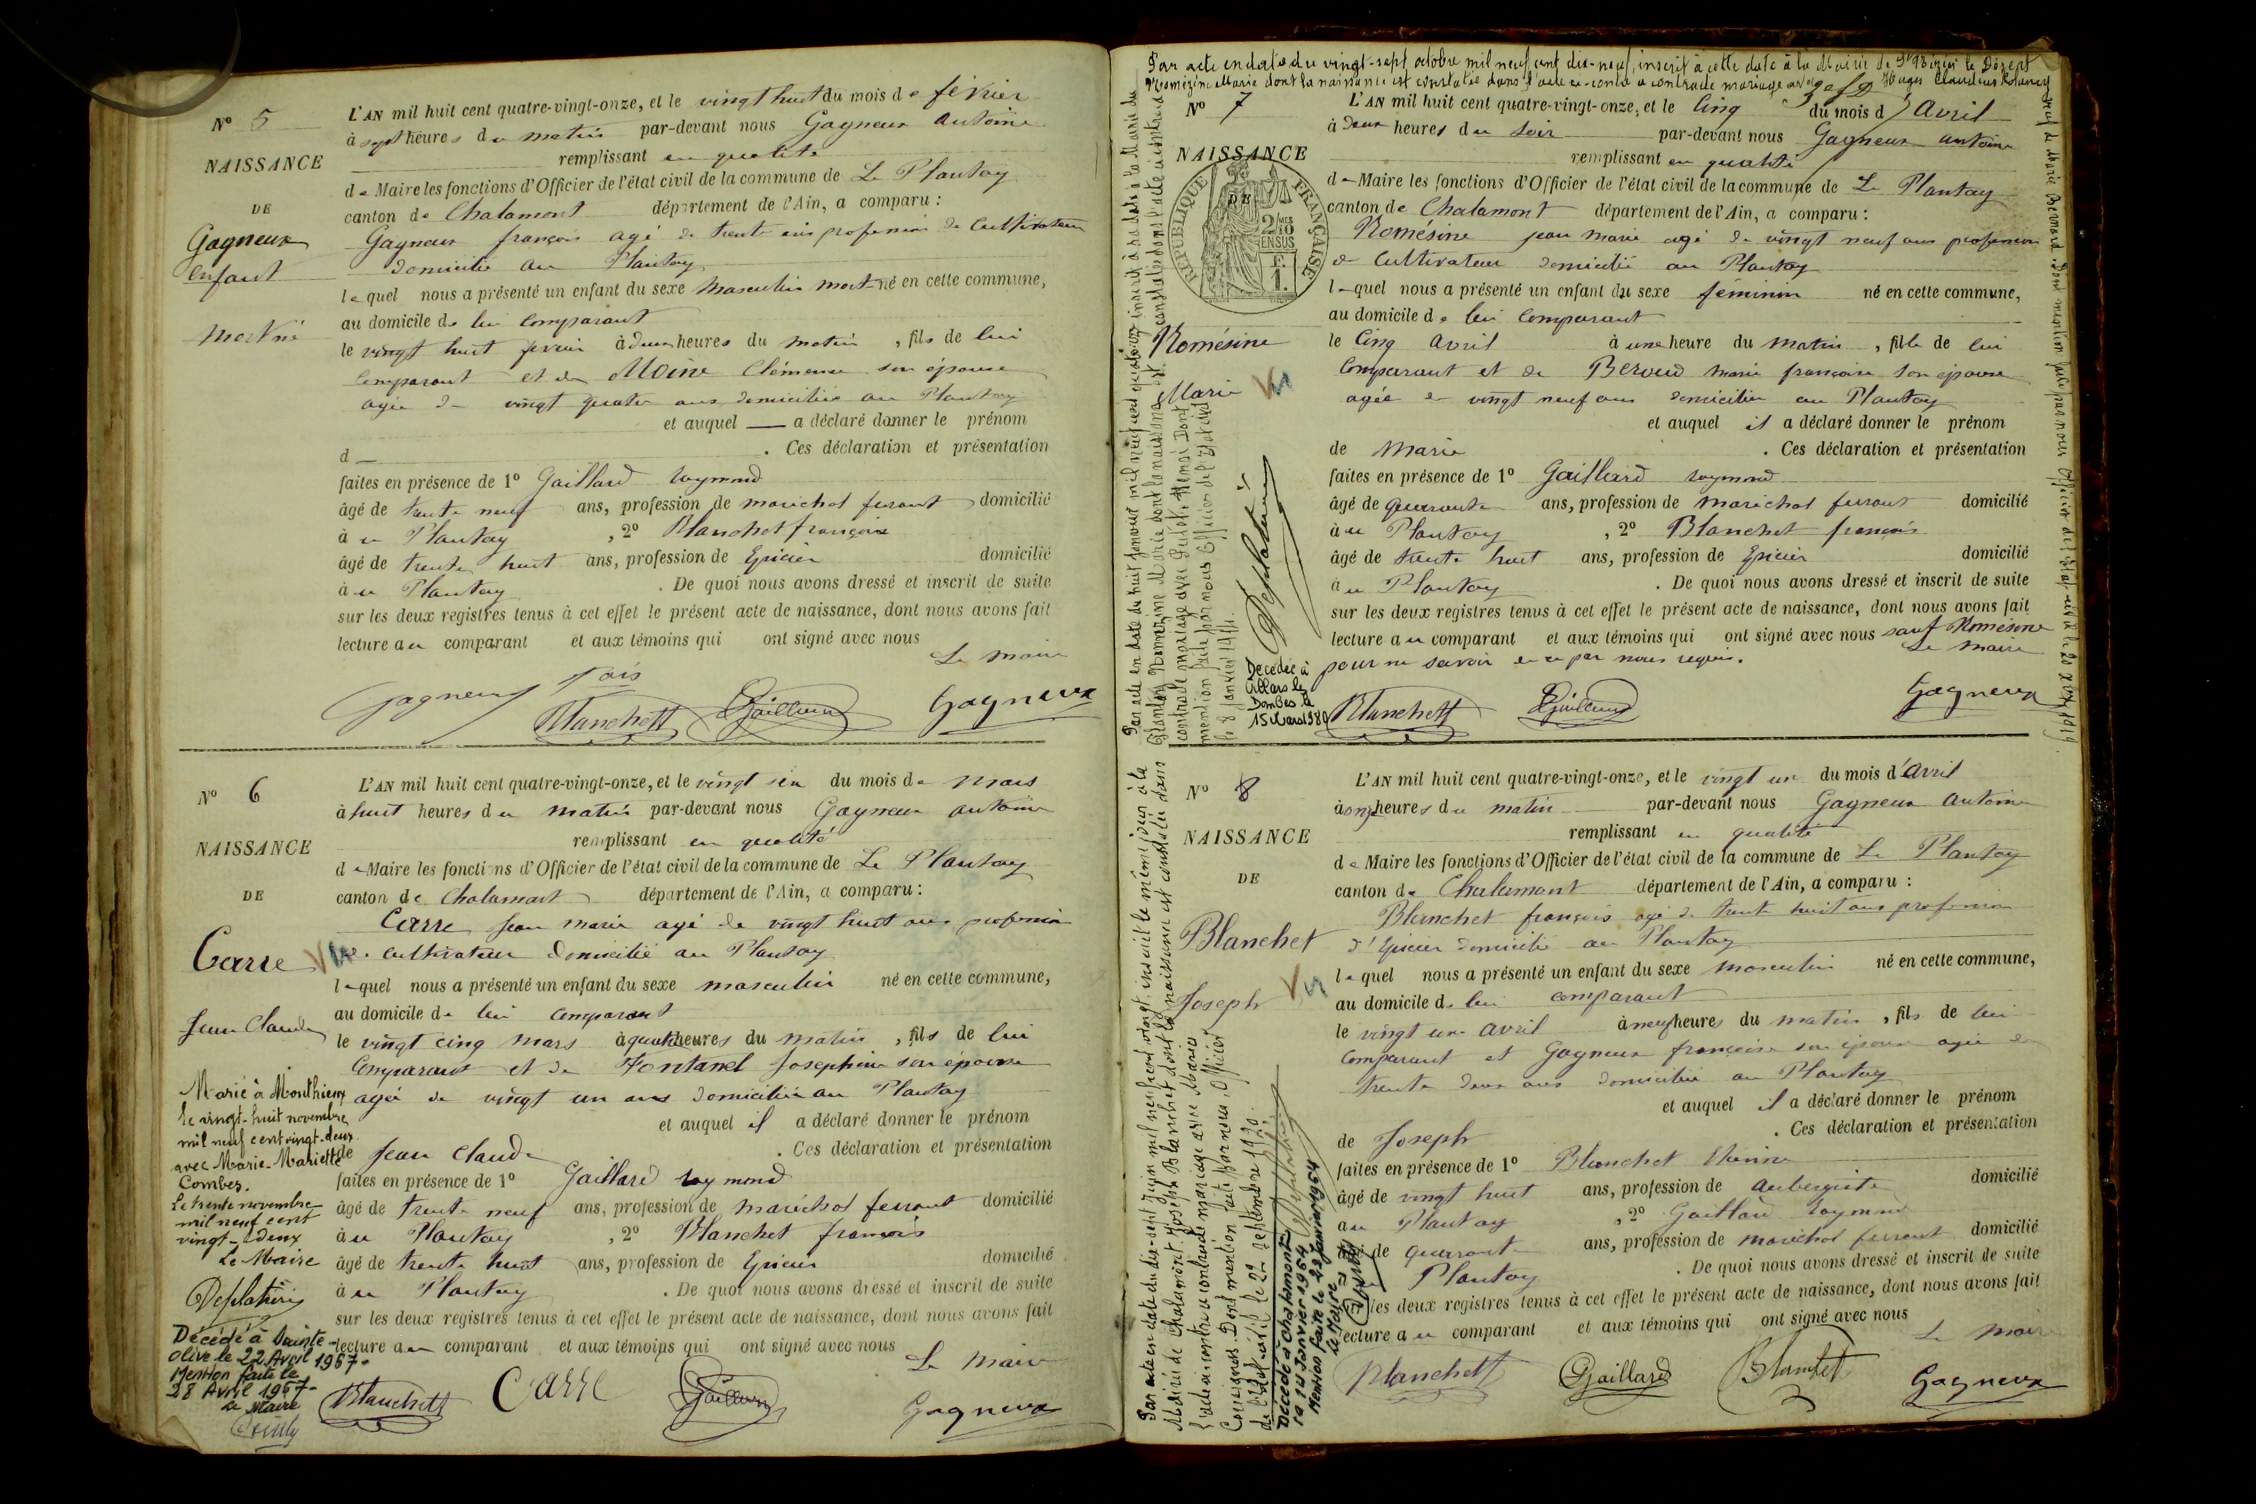 N° 5
NAISSANCE
DE
Gagneux
enfant
mort né
L'AN mil huit cent quatre-vingt-onze, et le vingt huit du mois de février
à sept heures du matin par-devant nous Gagneux antoine
remplissant en qualité
de Maire les fonctions d'Officier de l'état civil de la commune de Le Plantay
canton de Chalamont département de l'Ain, a comparu :
Gagneux françois agé de trente six profession de Cultivateur
domicilié au Plantay
lequel nous a présenté un enfant du sexe masculin mort né en cette commune,
au domicile de lui comparant
le vingt huit fevrier à deux heures du matin, fils de lui
comparant et de Moine Clémence son épouse
agée de vingt quatre ans domiciliée au Plantay
et auquel — a déclaré donner le prénom
d — . Ces déclaration et présentation
faites en présence de 1° Gaillard raymond
âgé de trente neuf ans, profession de maréchal ferrant domicilié
à u Plantay , 2° Blanchet françois
âgé de trente huit ans, profession de Epicier domicilié
à u Plantay . De quoi nous avons dressé et inscrit de suite
sur les deux registres tenus à cet effet le présent acte de naissance, dont nous avons fait
lecture au comparant et aux témoins qui ont signé avec nous
Le maire
Gagneux fois
Blanchett Gaillard Gagneux
N° 6
NAISSANCE
DE
Carre
Jean Claude
L'AN mil huit cent quatre-vingt-onze, et le vingt six du mois de mars
à huit heures du matin par-devant nous Gagneux antoine
remplissant en qualité
de Maire les fonctions d'Officier de l'état civil de la commune de Le Plantay
canton de Chalamont département de l'Ain, a comparu :
Carre Jean marie agé de vingt huit ans profession
de cultivateur domicilié au Plantay
lequel nous a présenté un enfant du sexe masculin né en cette commune,
au domicile de lui comparant
le vingt cinq mars à quatre heures du matin, fils de lui
comparant et de Fontanel Josephine son épouse
agée de vingt un ans domiciliée au Plantay
et auquel il a déclaré donner le prénom
de Jean Claude . Ces déclaration et présentation
faites en présence de 1° Gaillard raymond
âgé de trente neuf ans, profession de maréchal ferrant domicilié
à u Plantay , 2° Blanchet françois
âgé de trente huit ans, profession de Epicier domicilié
à u Plantay . De quoi nous avons dressé et inscrit de suite
sur les deux registres tenus à cet effet le présent acte de naissance, dont nous avons fait
lecture au comparant et aux témoins qui ont signé avec nous
Le maire
Blanchett Carre Gaillard Gagneux
Marié à Monthieux
le vingt-huit novembre
mil neuf cent vingt-deux
avec Marie-Mariette
Combez.
Le trente novembre
mil neuf cent
vingt-deux
Le Maire
Desplatière
Décédé à Sainte-
Olive le 22 Avril 1967-
Mention faite le
28 Avril 1967-
Le Maire
Par acte en date du vingt-sept octobre mil neuf cent dix-neuf, inscrit à cette date à la Mairie de le Désert
Romézine Marie dont la naissance est constatée dans l'acte ci-contre a contracté mariage avec Hugues Claudius
veuf de Marie Bernard. Dont mention faite par nous Officier de l'Etat-civil le 20 1919.
N° 7
NAISSANCE
DE
RÉPUBLIQUE FRANÇAISE
2/10 EN SUS
F.
1.
Romésine
Marie
L'AN mil huit cent quatre-vingt-onze, et le Cinq du mois d' Avril
à deux heures du soir par-devant nous Gagneux antoine
remplissant en qualité
de Maire les fonctions d'Officier de l'état civil de la commune de Le Plantay
canton de Chalamont département de l'Ain, a comparu :
Romésine jean marie agé de vingt neuf ans profession
de Cultivateur domicilié au Plantay
lequel nous a présenté un enfant du sexe féminin né en cette commune,
au domicile de lui comparant
le Cinq avril à une heure du matin, fille de lui
Comparant et de marie françoise son épouse
agée de vingt neuf ans domiciliée au Plantay
et auquel il a déclaré donner le prénom
de marie . Ces déclaration et présentation
faites en présence de 1° Gaillard raymond
âgé de quarante ans, profession de maréchal ferrant domicilié
à u Plantay , 2° Blanchet françois
âgé de trente huit ans, profession de Epicier domicilié
à u Plantay . De quoi nous avons dressé et inscrit de suite
sur les deux registres tenus à cet effet le présent acte de naissance, dont nous avons fait
lecture au comparant et aux témoins qui ont signé avec nous sauf Romésine
pour ne savoir de ce par nous requis. Le maire
Blanchett Gaillard Gagneux
Par acte en date du huit janvier mil neuf cent inscrit à sa date à la Mairie du
Plantay Romezine Marie dont la naissance est constatée dans l'acte ci-contre a
contracté mariage avec Rémoi Dont
mention faite par nous Officier de l'Etat civil
le 8 janvier
Desplatière
Décédée à
Villars les
Dombes le
15 Mars 1980
N° 8
NAISSANCE
DE
Blanchet
Joseph
L'AN mil huit cent quatre-vingt-onze, et le vingt un du mois d'avril
à onze heures du matin par-devant nous Gagneux antoine
remplissant en qualité
de Maire les fonctions d'Officier de l'état civil de la commune de Le Plantay
canton de Chalamont département de l'Ain, a comparu :
Blanchet françois agé de trente huit ans profession
d'Epicier domicilié au Plantay
lequel nous a présenté un enfant du sexe masculin né en cette commune,
au domicile de lui comparant
le vingt un avril à neuf heures du matin, fils de lui
comparant et Gagneux françoise son épouse agée de
trente deux ans domiciliée au Plantay
et auquel il a déclaré donner le prénom
de Joseph . Ces déclaration et présentation
faites en présence de 1° Blanchet Etienne
âgé de vingt huit ans, profession de aubergiste domicilié
au Plantay , 2° Gaillard raymond
âgé de quarante ans, profession de maréchal ferrant domicilié
Plantay . De quoi nous avons dressé et inscrit de suite
les deux registres tenus à cet effet le présent acte de naissance, dont nous avons fait
lecture au comparant et aux témoins qui ont signé avec nous
Le maire
Blanchett Gaillard Blanchet Gagneux
Par acte en date du dix-sept juin mil neuf cent vingt, inscrit le même jour à la
Mairie de Chalamont, Joseph Blanchet dont la naissance est constatée dans
l'acte ci-contre a contracté mariage avec Marie
Dont mention faite par nous, Officier
de l'état civil le 22 septembre 1920.
Desplatière
Décédé à Chalamont
le 14 Janvier 1964
Mention faite le 23 Janvier 1964
Le Maire